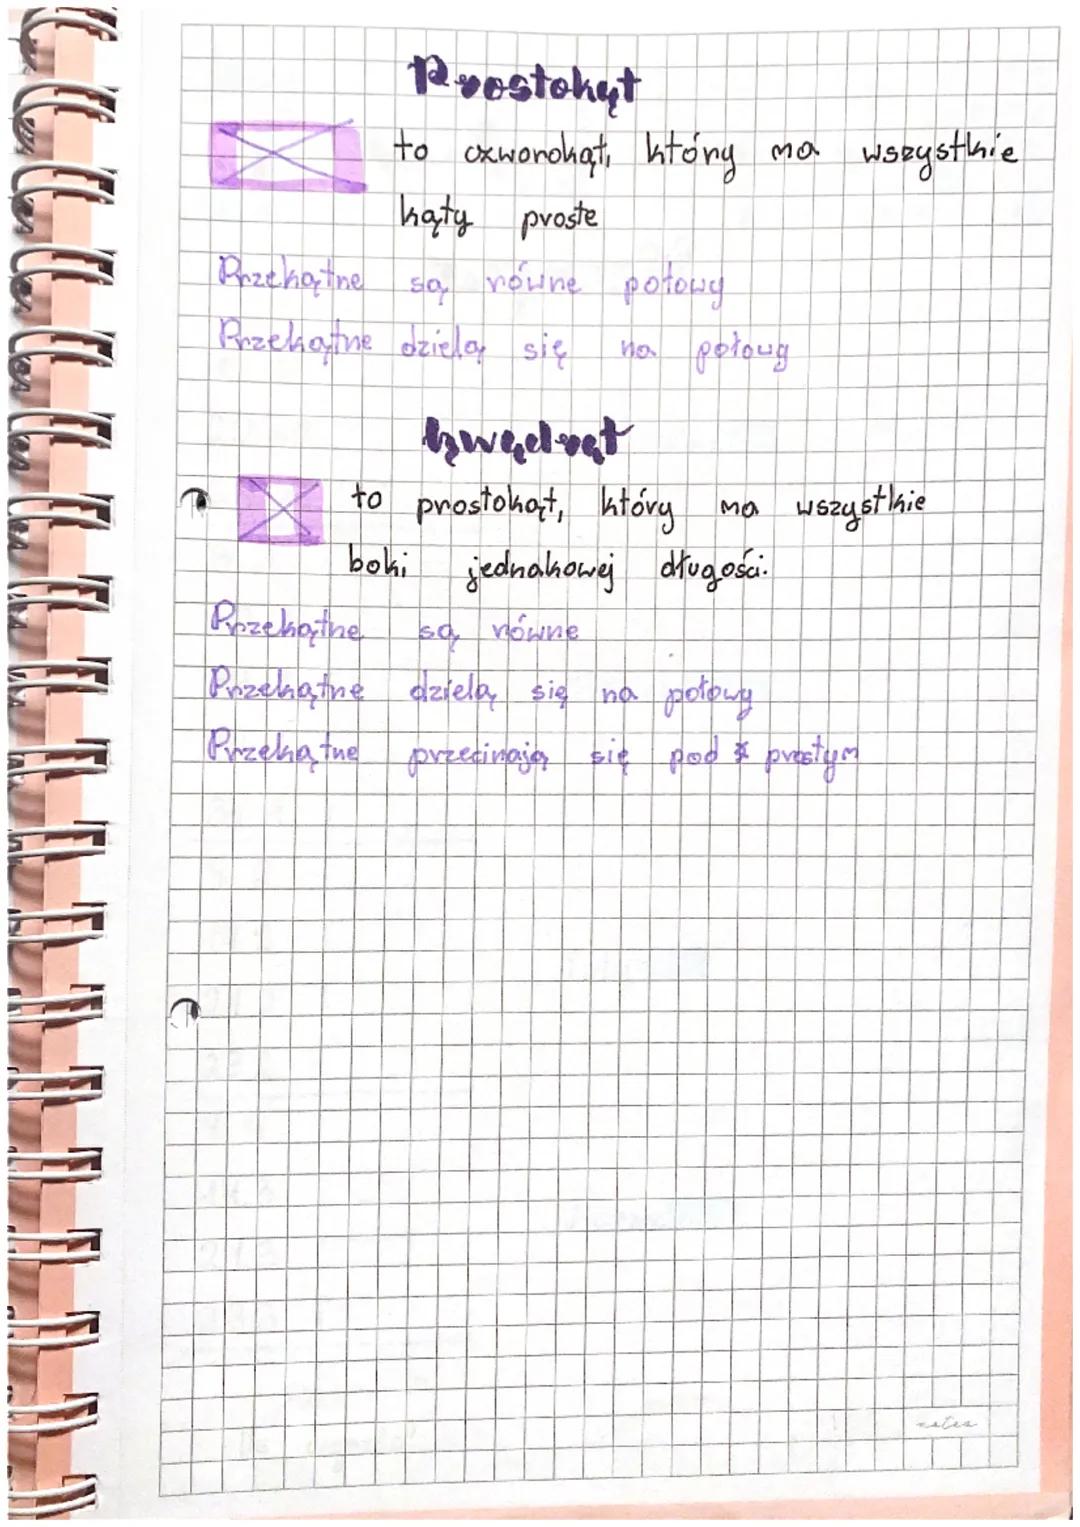 Prostokąt
to czworokąt, który ma wszystkie
kąty proste
Przekątne są równe połowy
Przekątne dzielą się na połowy
Kwadrat
to prostokąt, który ma wszystkie
boki jednakowej długości.
Przekątne są równe
Przekątne dzielą się na połowy
Przekątne przecinają się pod ∡ prostym
notes